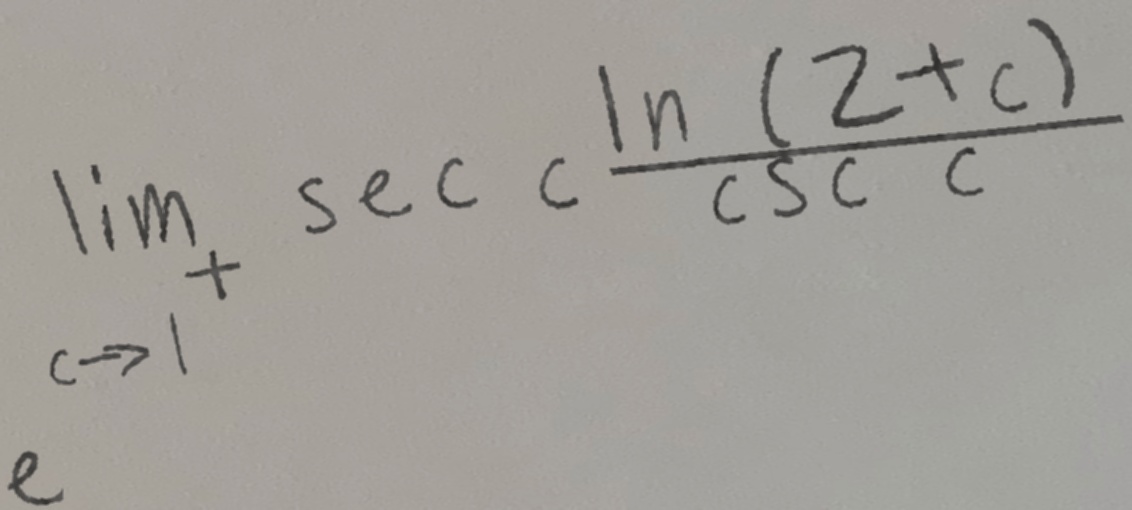 lim_{c→1^+} sec c \frac{ln (2+c)}{csc c}
e